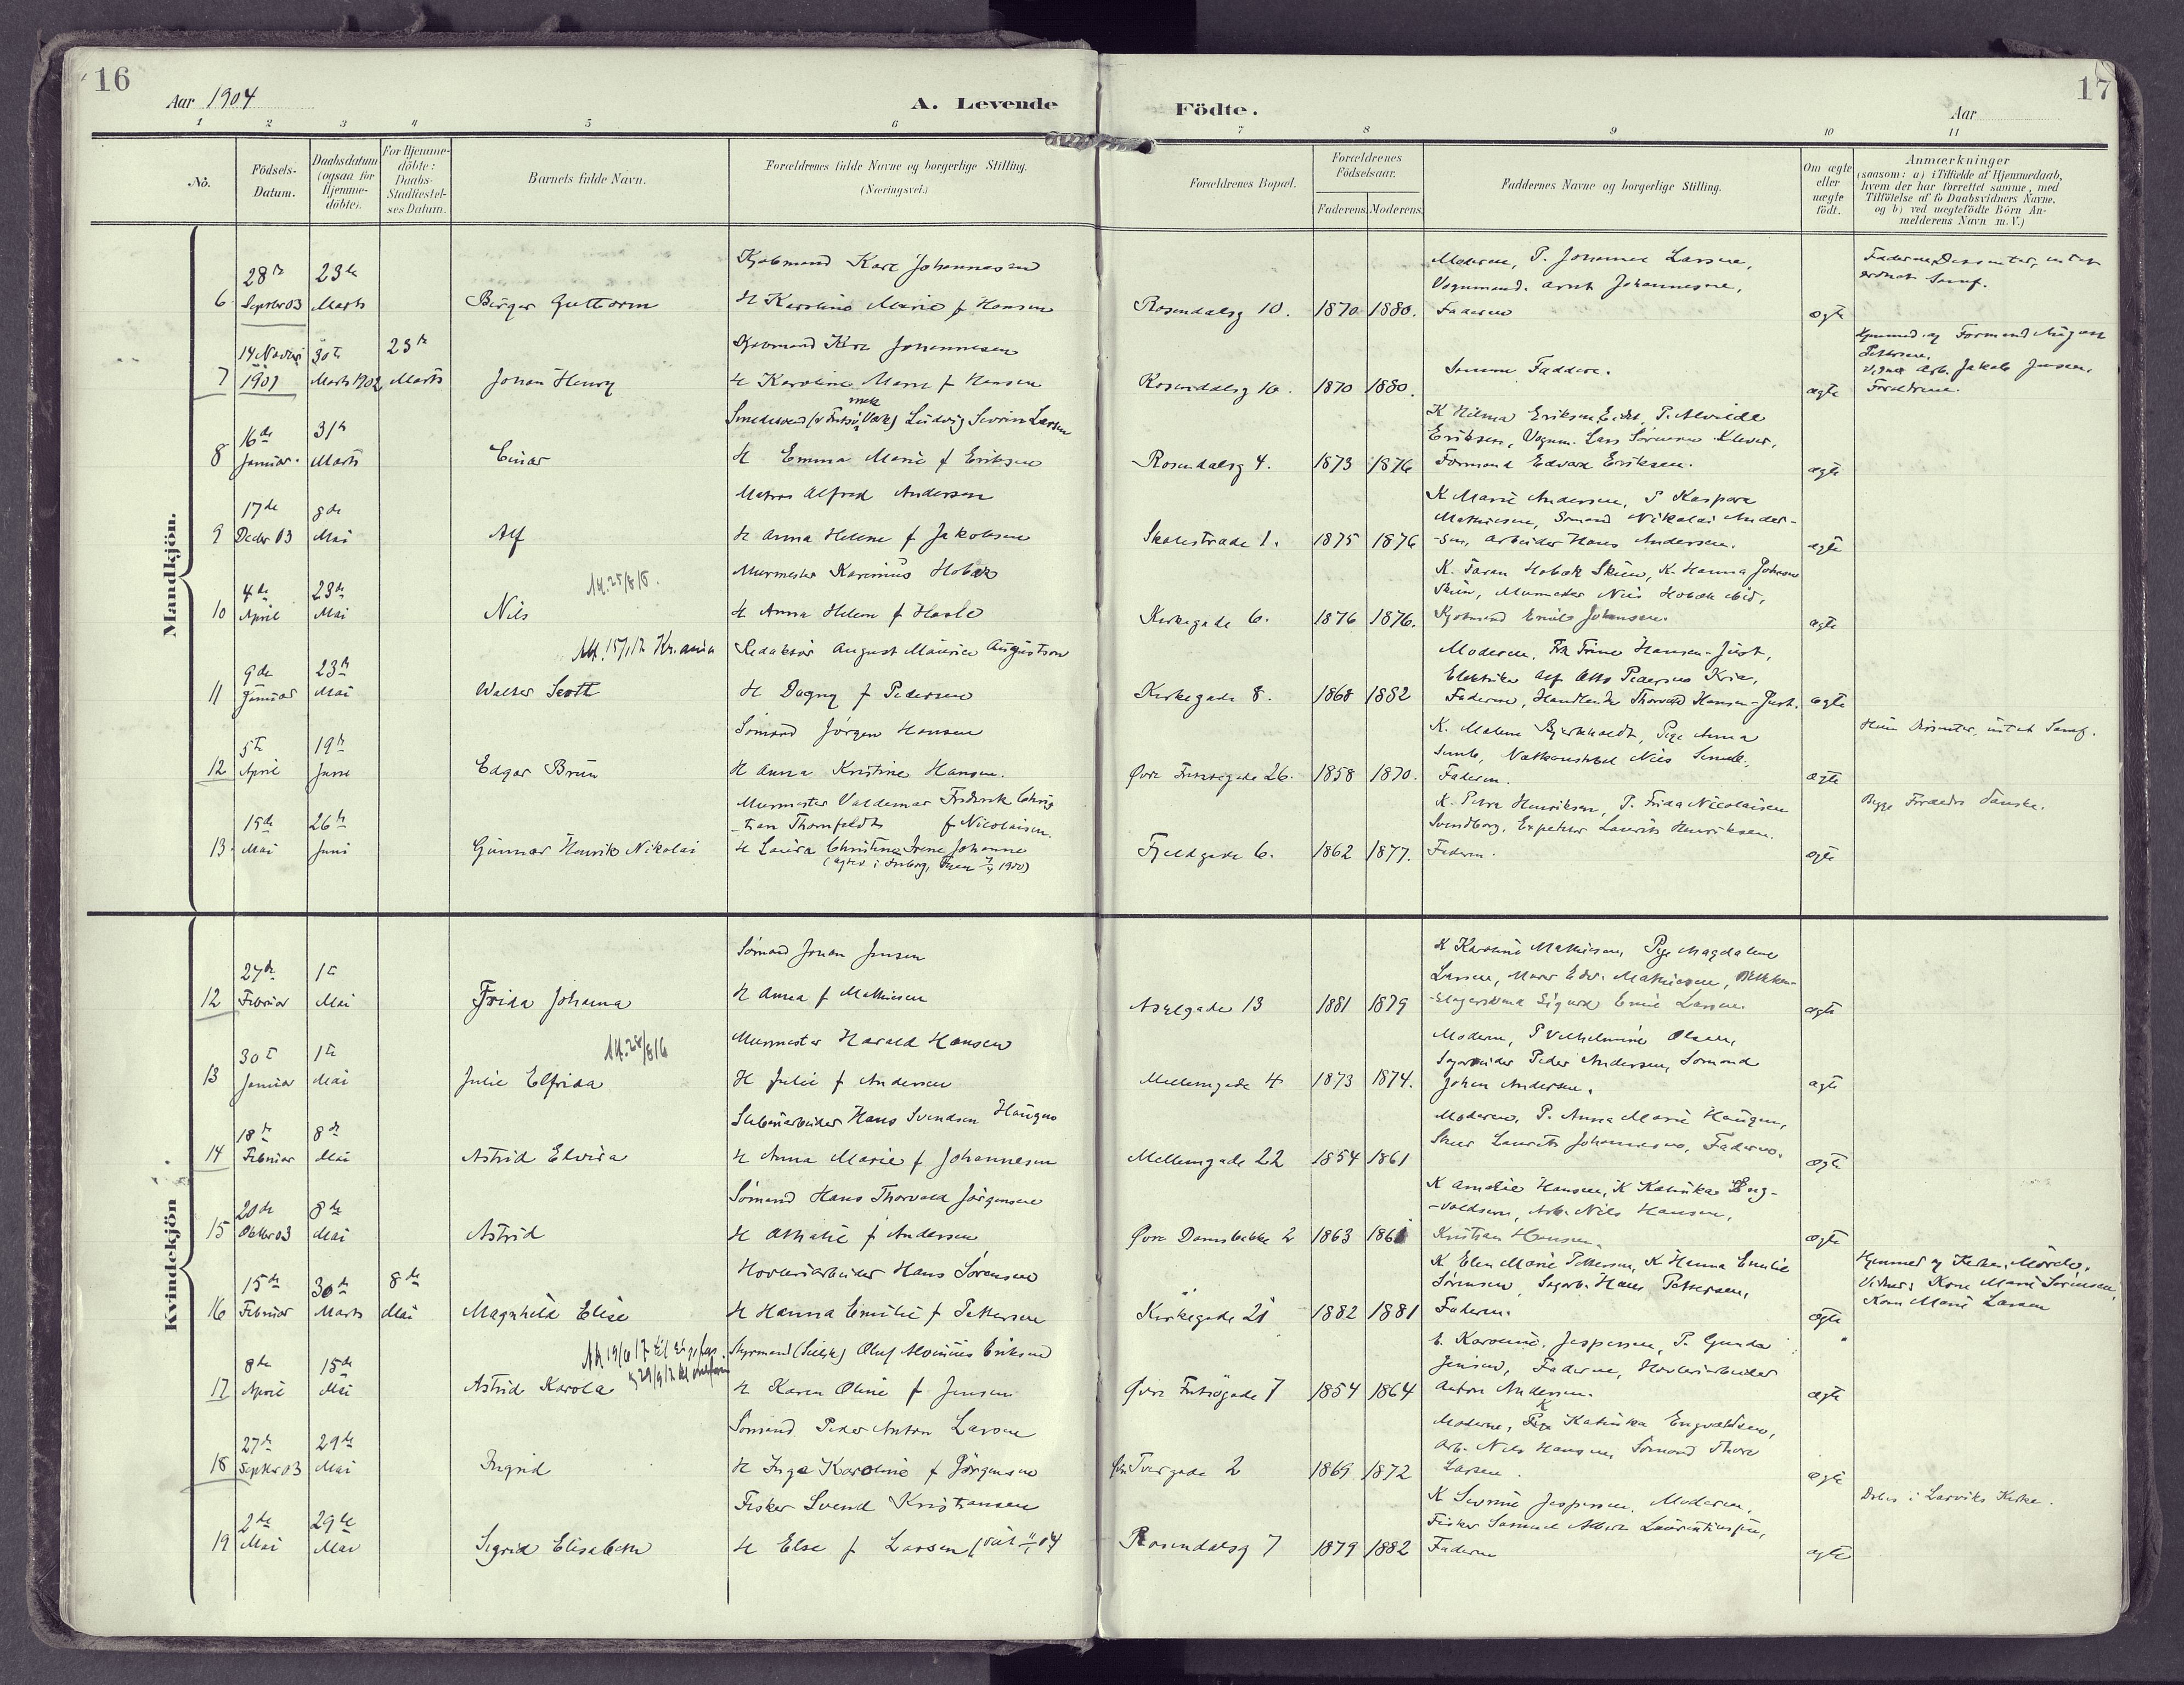 16
Aar 1904
A. Levende
Födte.
Aar
17
1 2 3 4 5 6 7 8 9 10 11
No.
Födsels-Datum.
Daabsdatum (ogsaa for Hjemme-döbte).
For Hjemme-döbte: Daabs-Stadfæstel-ses Datum.
Barnets fulde Navn.
Forældrenes fulde Navne og borgerlige Stilling.
(Næringsvei.)
Forældrenes Bopæl.
Forældrenes Födselsaar.
Faderens. Moderens.
Faddernes Navne og borgerlige Stilling.
Om ægte eller uægte födt.
Anmærkninger
(saasom: a) i Tilfælde af Hjemmedaab, hvem der har forrettet samme, med Tilföielse af to Daabsvidners Navne, og b) ved uægtefödte Börn An-melderens Navn m.V.)
Mandkjön.
6 28de Septbr 03 23de Marts Birger Guttorm
Kjøbmand Karl Johannesen
H Karoline Marie f Hansen
Rosendalsg 10. 1870 1880.
Moderen, P. Johanne Larsen,
Vognmand Arnt Johannesen,
Faderen
ægte
7 14 Novbr 1901 30te Marts 1902 23de Marts Johan Henry
Kjøbmand Karl Johannesen
H Karoline Marie f Hansen
Rosendalsg 10. 1870 1880.
Samme Faddere.
ægte
Hjemmed. af Formand August
Pettersen.
Vidner Arb. Jakob Jensen,
Forældrene.
8 16de Januar. 31te Marts Einar
Ludvig Severin Larsen
H Emma Marie f Eriksen
Rosendalsg 4. 1873 1876
K Hilma Eriksen Eidet, P. Alvilde
Eriksen, Vognm. Lars Sørensen Klever,
Formand Edvard Eriksen.
ægte
9 17de Decbr 03 8de Mai Alf
Matros Alfred Andersen
H Anna Helene f Jakobsen
Skolestræde 1. 1875 1876
K Marie Andersen, P Kaspara
Mathisen, Sømand Nikolai Ander-
-sen, Arbeider Hans Andersen.
ægte
10 4de April 23de Mai Nils
Murmester Karenius Hobæk
H Anna Helene f Hasle
Kirkegade 6. 1876 1876.
K. Taran Hobæk Skien, K. Hanna Johnsen
Skien, Murmester Nils Hobæk ibid,
Kjøbmand Emil Johansen.
ægte
11 9de Januar 23de Mai Walter Scott
Redaktør August Maurice Augustson
H Dagny f Pedersen
Kirkegade 8. 1868 1882
Moderen, Frk Trine Hansen-Just,
Elektriker Alf Otto Pedersen Kria,
Faderen, Handlende Thorvald Hansen-Just.
ægte
12 5te April 19de Juni Edgar Brun
Sømand Jørgen Hansen
H Anna Kristine Hansen.
Øvre Fritzøegade 26. 1858 1870.
K. Malene Bjerkholdt, Pige Anna
Semb, Natkonstabel Nils Semb,
Faderen.
ægte
13 15de Mai 26de Juni Gunnar Henrik Nikolai
Murmester Valdemar Frederik Chris
-tian Thornfeldt f Nicolaisen.
H Laura Christine Irene Johanne
Fjeldgade 6. 1862 1877.
K. Petra Henriksen, P. Frida Nicolaisen
Svendborg, Expeditør Laurits Henriksen.
Faderen.
ægte
Begge Forældre danske.
Kvindekjön
12 27de Februar 1te Mai Frida Johanna
Sømand Johan Jensen
H Anna f Mathisen
Axelgade 13 1881 1879
K Karoline Mathisen, Pige Magdalene
Larsen, Edv. Mathisen, Blikken-
Sigurd Emil Larsen
ægte
13 30te Januar 1te Mai Julie Elfrida
Murmester Harald Hansen
H Julie f Andersen
Mellemgade 4 1873 1874.
Moderen, P Vilhelmine Olsen,
Peder Andersen, Sømand
Johan Andersen.
ægte
14 18de Februar 8de Mai Astrid Elvira
Støberiarbeider Hans Svendsen Haugen
H Anna Marie f Johannesen
Mellemgade 22 1854 1861
Moderen, P. Anna Marie Haugen,
Laurits Johannesen, Faderen.
ægte
15 20de Oktbr 03 8de Mai Astrid
Sømand Hans Thorvald Jørgensen
H Athalie f Andersen
Øvre Damsbakke 2 1863
K Amalie Hansen, K Katinka Eng-
-voldsen, Arb. Nils Hansen,
Kristian Hansen.
ægte
16 15de Februar 30de Marts 8de Mai Magnhild Elise
Høvleriarbeider Hans Sørensen
H Hanna Emilie f Pettersen
Kirkegade 21 1882 1881
K Elen Marie Pettersen, K Hanna Emilie
Sørensen, Sagarb. Hans Pettersen,
Faderen.
ægte
Vidner: Karen Marie Sørensen,
Karen Marie Larsen
17 8de April 15de Mai Astrid Karola
Styrmand Oluf Alvinius Eriksen
H Karen Oline f Jensen
Øvre Fritzøgade 7 1854 1864
Karoline Jespersen, P. Gunda
Jensen, Faderen, Høvleriarbeider
Anton Andersen.
ægte
18 27de Septbr 03 29de Mai Ingrid
Sømand Peder Anton Larsen
H Inga Karoline f Jørgensen
Tvergade 2 1869 1872
Moderen, K Katinka Engvoldsen,
Arb. Nils Hansen, Sømand Thor
Larsen.
ægte
19 2de Mai 29de Mai Sigrid Elisabeth
Fisker Svend Kristiansen
H Else f Larsen
Rosendalsg 7 1879 1882
K Severine Jespersen, Moderen,
Fisker Samuel Albert Laurentiussen,
Faderen
ægte
Døbt i Larviks Kirke.